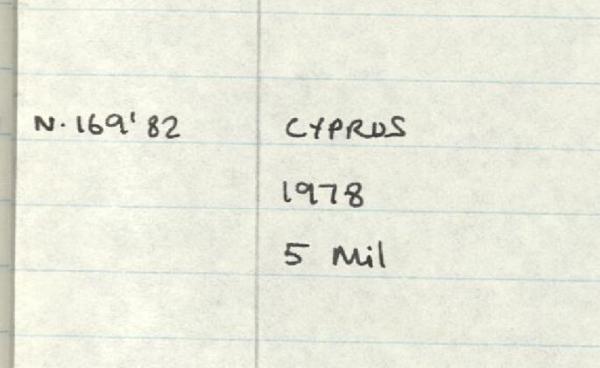 N.169'82 CYPRUS
1978
5 Mil